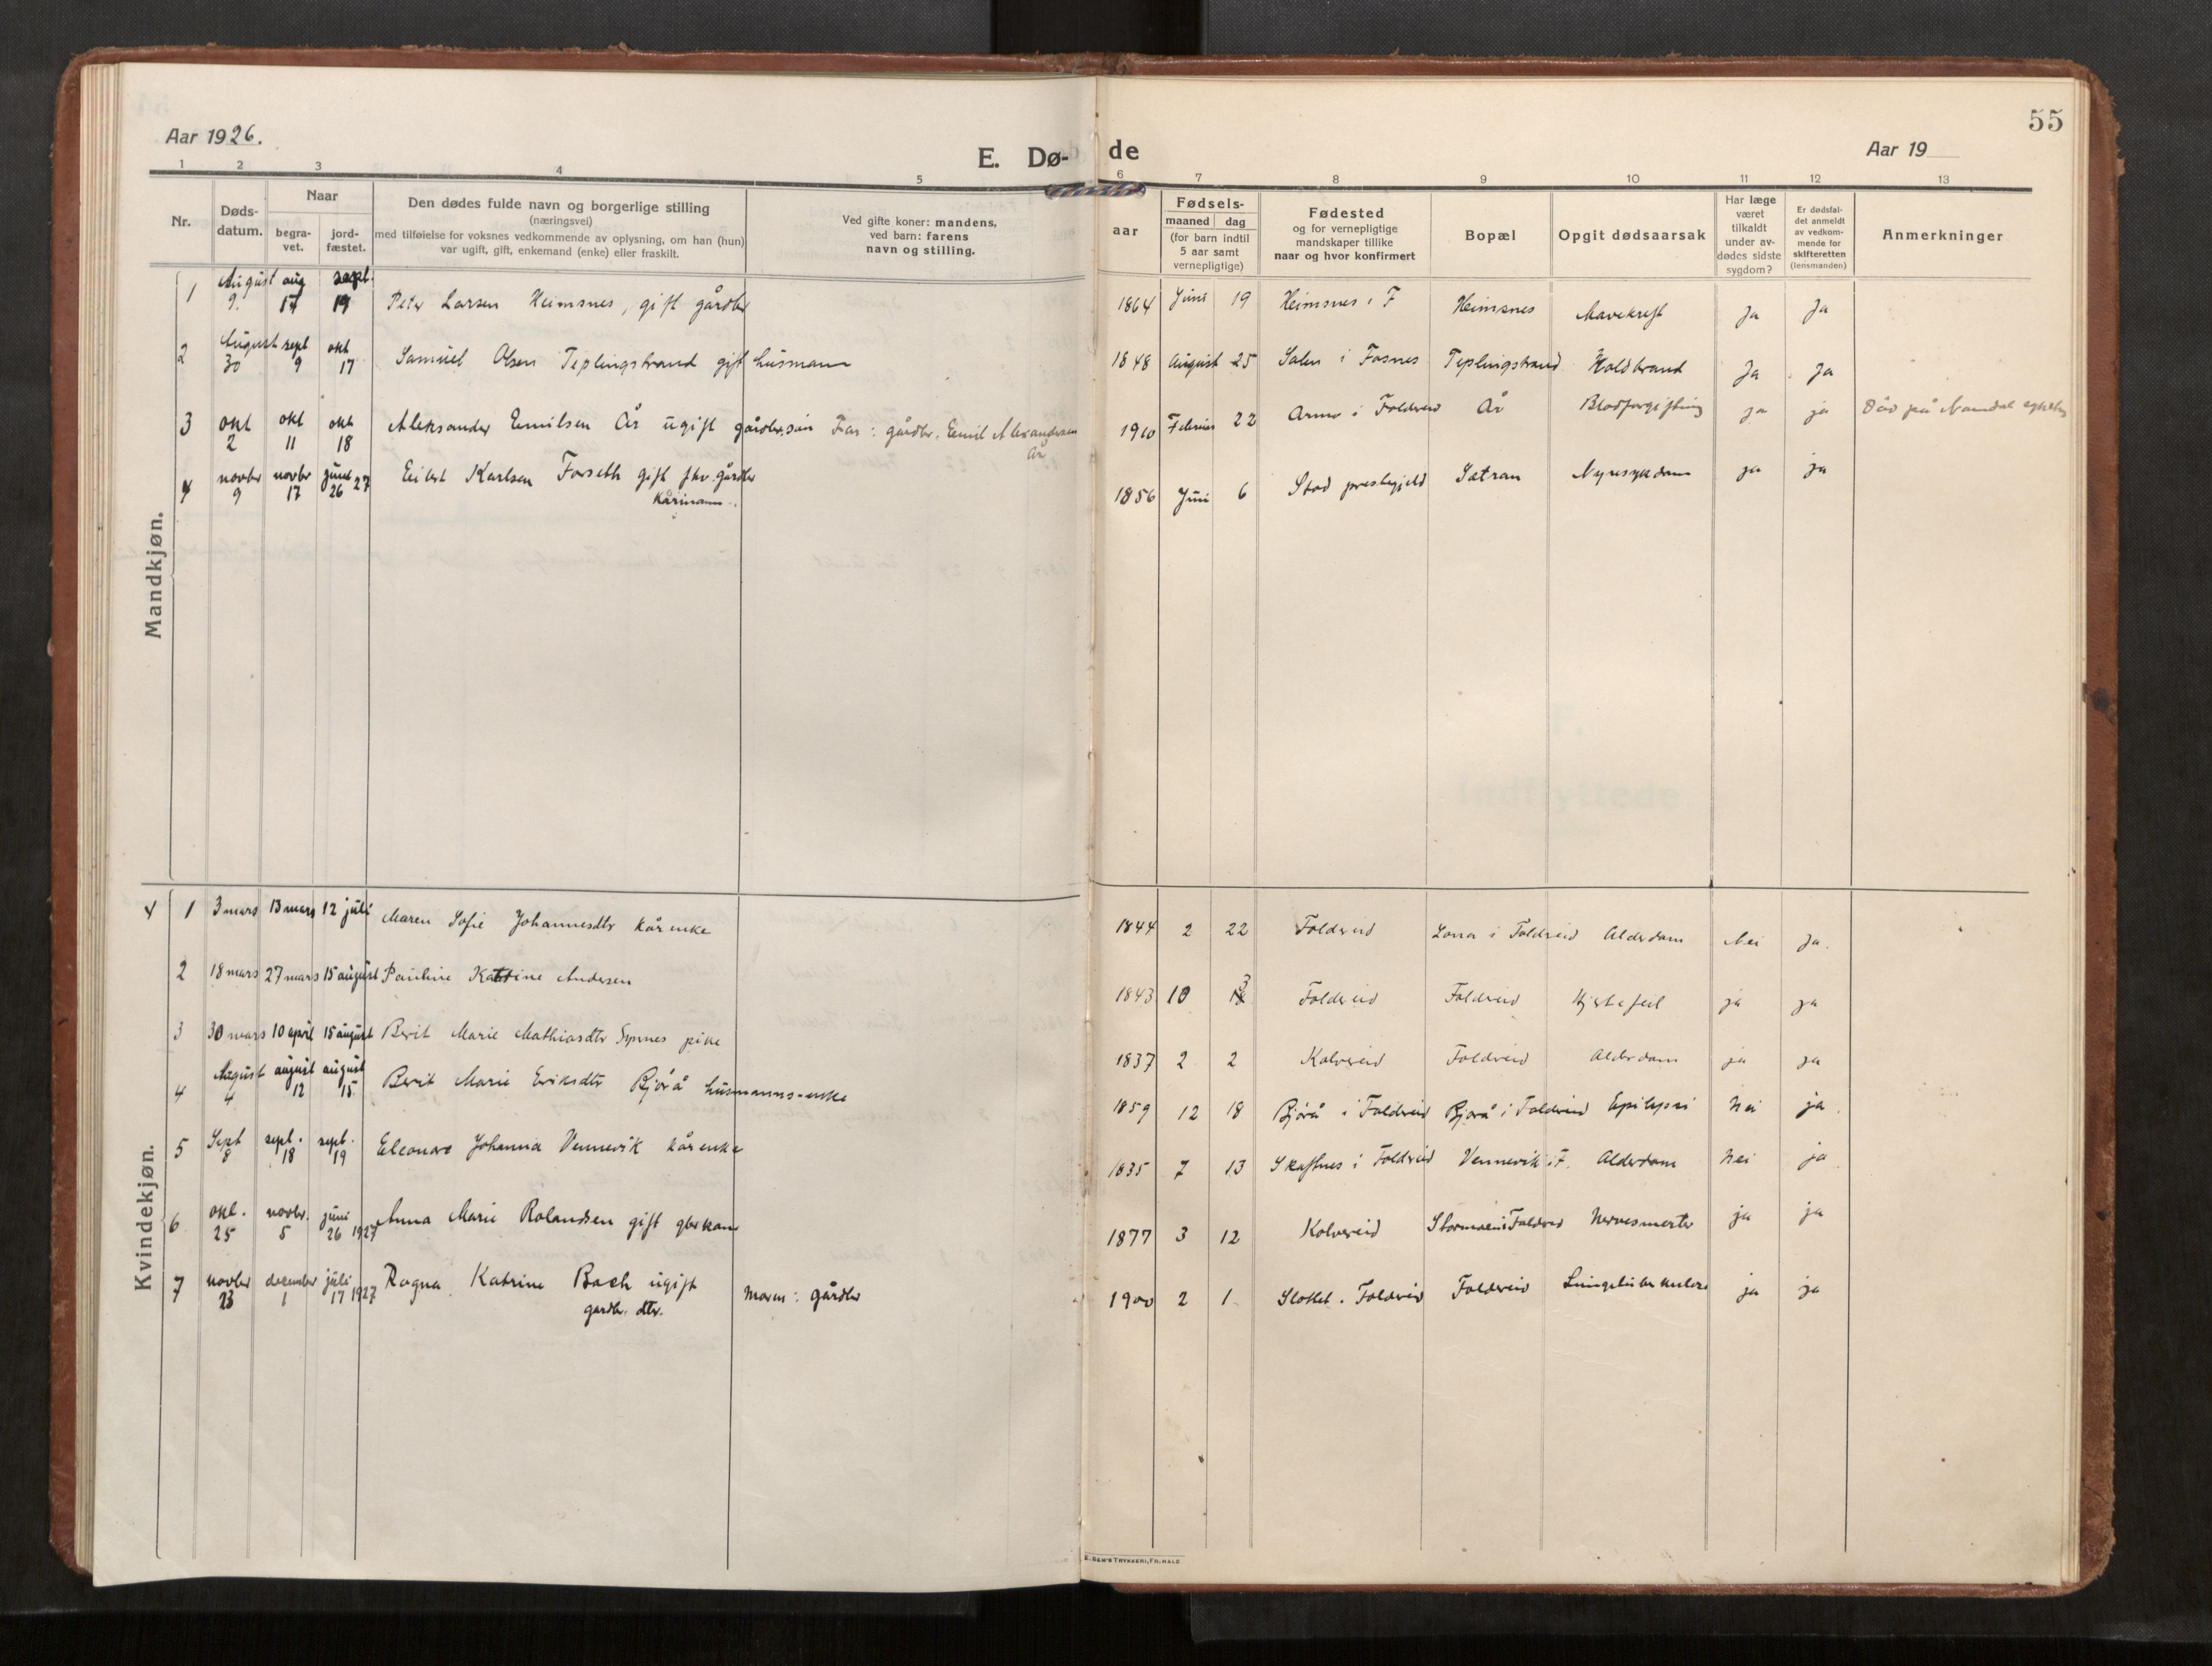 55
Aar 1926.
E. Dø-
de
Aar 19
1 2 3 4 5 6 7 8 9 10 11 12 13
Nr.
Døds-
datum.
Naar
begra-
vet.
jord-
fæstet.
Den dødes fulde navn og borgerlige stilling
(næringsvei)
med tilføielse for voksnes vedkommende av oplysning, om han (hun)
var ugift, gift, enkemand (enke) eller fraskilt.
Ved gifte koner: mandens,
ved barn: farens
navn og stilling.
aar
Fødsels-
maaned dag
(for barn indtil
5 aar samt
vernepligtige)
Fødested
og for vernepligtige
mandskaper tillike
naar og hvor konfirmert
Bopæl
Opgit dødsaarsak
Har læge
været
tilkaldt
under av-
dødes sidste
sygdom?
Er dødsfal-
det anmeldt
av vedkom-
mende for
skifteretten
(lensmanden)
Anmerkninger
Mandkjøn.
1 August 9. aug 17 sept. 19 Peter Larsen Heimsnes, gift gårdbr 1864 Juni 19 Heimsnes i F Heimsnes Mavekreft Ja Ja
2 August 30 sept 9 okt 17 Samuel Olsen Teplingstrand gift husmann 1848 August 25 Salen i Fosnes Teplingstrand Koldbrand Ja Ja
3 okt 2 okt 11 okt 18 Aleksander Emilsen År ugift gårdbr.sön Far: gårdbr. Emil Alexandersen
År
1910 Februar 22 Armo i Foldereid År Blodforgiftning ja ja Död på Namdal sykehus
4 novbr 9 novbr 17 juni 26 27 Eilert Karlsen Forseth gift fhv. gårdbr
Kårmann.
1856 Juni 6 Stod prestegjeld Satran Nyresykdom ja ja
Kvindekjøn.
1 3 mars 13 mars 12 juli Maren Sofie Johannesdtr kårenke 1844 2 22 Foldereid Lona i Foldreid Alderdom Nei Ja.
2 18 mars 27 mars 15 august Pauline Katrine Andersen 1843 10 3 Foldereid Foldreid Hjertefeil ja ja
3 30 mars 10 april 15 august Berit Marie Mathiasdtr Synnes pike 1837 2 2 Kolvereid Foldreid Alderdom ja ja
4 August 4 august 12 august 15 Berit Marie Eriksdtr Bjørå husmanns-enke 1859 12 18 Bjørå i Foldreid Bjørå i Foldreid Epilepsi Nei ja.
5 Sept 8 sept. 18 sept. 19 Eleonore Johanna Vennevik kårenke 1835 7 13 Skaftnes i Foldreid Vennevik i F. Alderdom Nei ja.
6 okt. 25 novbr. 5 juni 26 1927 Anna Marie Rolandsen gift gbr kone 1877 3 12 Kolvereid Stormoen i Foldreid Nervesmerter ja ja
7 novbr 23 december 1 juli 17 1927 Ragna Katrine Bach ugift
gardbr. dtr.
Moren: gårdbr
1900 2 1 Slottet. Foldreid Foldereid Lungetuberkulose ja ja
E. SEM'S TRYKKERI, FR.HALD